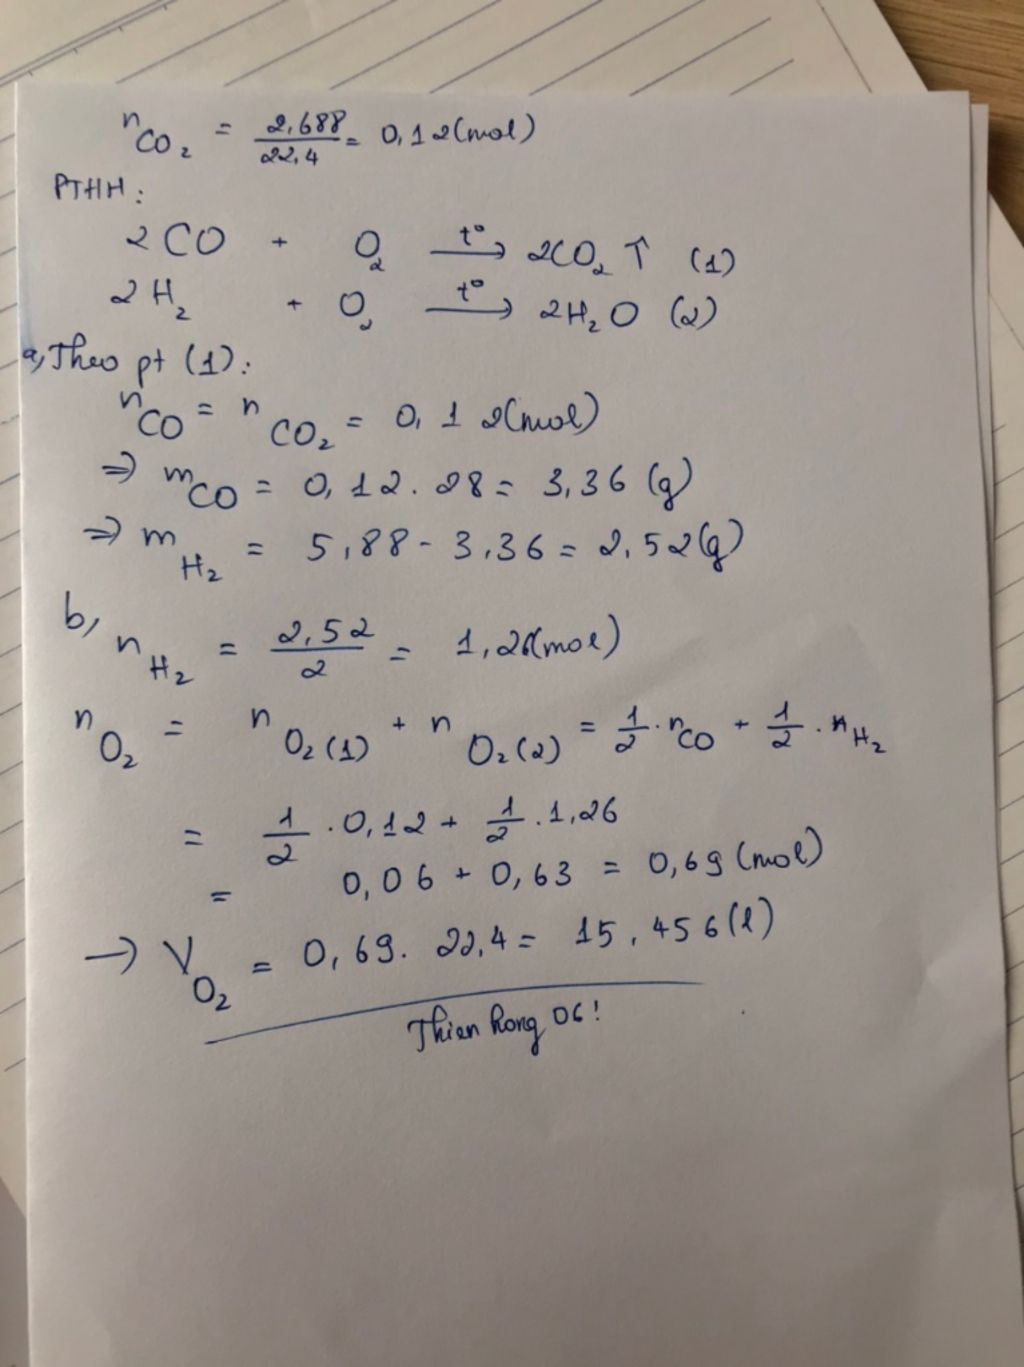 nCO₂ = 2,688/22,4 = 0,12(mol)
PTHH:
2CO + O₂ —t°→ 2CO₂ ↑ (1)
2H₂ + O₂ —t°→ 2H₂O (2)
a, Theo pt (1):
nCO = nCO₂ = 0,12(mol)
⇒ mCO = 0,12.28 = 3,36 (g)
⇒ mH₂ = 5,88 - 3,36 = 2,52(g)
b,
nH₂ = 2,52/2 = 1,26(mol)
nO₂ = nO₂(1) + nO₂(2) = 1/2 . nCO + 1/2 . nH₂
= 1/2 . 0,12 + 1/2 . 1,26
= 0,06 + 0,63 = 0,69 (mol)
→ VO₂ = 0,69. 22,4 = 15,456(l)
Thien hong 06!